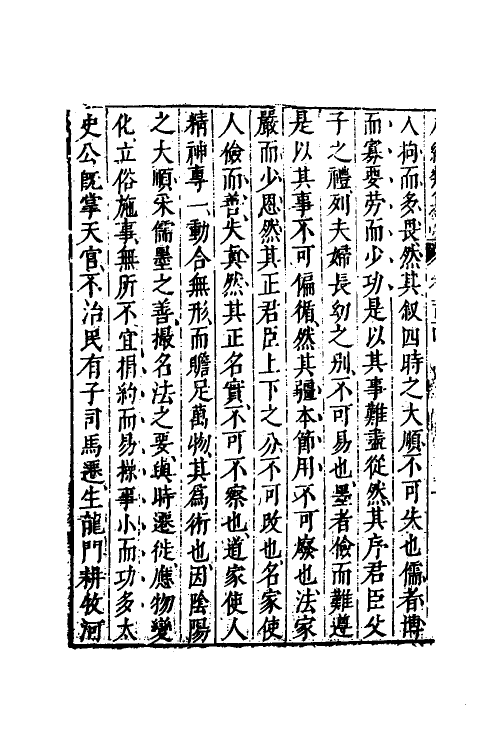 人拘而多畏然其叙四時之大順不可失也儒者博
而寡要劳而少功是以其事難盡從然其序君臣父
子之禮列夫婦長幼之别不可易也墨者儉而難遵
是以其事不可偏循然其彊本節用不可廢也法家
嚴而少恩然其正君臣上下之分不可改也名家使
人儉而善失真然其正名實不可不察也道家使人
精神専一動合無形而贍足萬物其爲術也因陰陽
之大順采儒墨之善撮名法之要與時遷徙應物變
化立俗施事無所不宜指約而易操事小而功多太
史公既掌天官不治民有子司馬遷生龍門耕牧河